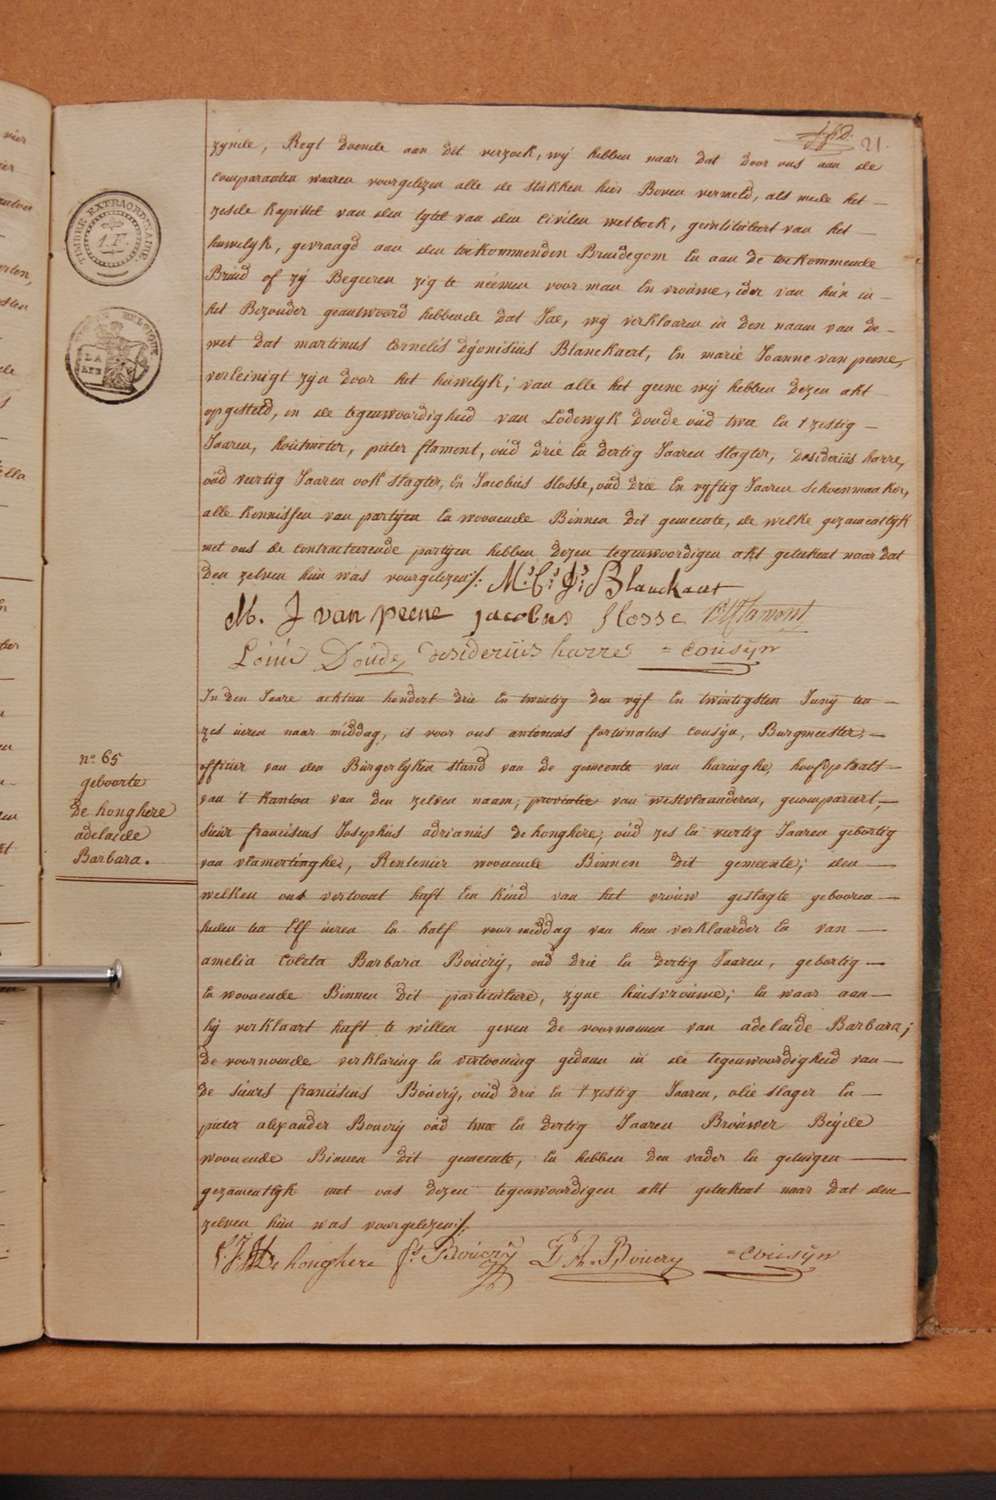 21.
zynde, Regt doende aan dit verzoek, wij hebben naar dat door ons aan de
comparanten waeren voorgelezen alle de stukken hier Boven vermeld, als mede het
zesde kapittel van den tytel van den Civilen wetboek, geïntituleert van het
huwelyk, gevraagd aan den toekommenden Bruidegom En aan de toekommende
Bruid of zÿ Begeeren zig te néemen voor man En vrouwe, ider van hún in
het Bezonder geantwoord hebbende dat Jae, wij verklaaren in den naam van de
wet dat martinus Cornelis dÿonisius Blanckaert, En marie Joanne van peene,
vereinigt zÿn door het huwelyk; van alle het geene wij hebben dezen akt
opgesteld, in de tegenwoordigheid van Lodewyk doude oud twee En tzestig
Jaaren, houtmeter, pieter flament, oúd drie En dertig Jaaren slagter, desiderius harre,
oúd veertig Jaaren ook slagter, En Jacobus slosse, oud drie En vyftig Jaaren schoenmaaker,
alle kennissen van partijen En woonende Binnen dit gemeente, de welke gezamentlyk
met ons de contracteerende partijen hebben dezen tegenwoordigen akt geteekent naar dat
den zelven hún was voorgelezen /:
M: C: D: Blanckaert
M. J van peene jacobus slosse P: Flament
Louis Doude desiderius harre = cousÿn
In den Jaare achtien hondert drie En twintig den vijf En twintigsten Junÿ ten
zes ueren naar middag, is voor ons antonius fortunatus cousÿn, Burgmeester,
officier van den Bürgerlyken stand van de gemeente van haringhe, hoofdplaats
van 't kanton van den zelven naam, provintie van westvlaanderen, gecompareert,
sieur franciscus Josephus adrianús de honghere, oúd zes En veertig Jaaren gebortig
van vlamertinghe, Rentenier woonende Binnen dit gemeente; den
welken ons vertoont heeft Een kind van het vrouw geslagte gebooren
heden ten Elf ueren En half voor middag van hem verklaarder En van
amelia Coleta Barbara Bouerÿ, oud drie En dertig Jaaren, gebortig
En woonende Binnen dit particuliere, zyne huisvrouwe; En waar aan
hij verklaart heeft te willen geven de voornamen van adelaïde Barbara;
de voornoemde verklaring En vertooning gedaan in de tegenwoordigheid van
de sieurs franciscus Bouerÿ, oúd drie En tzestig Jaaren, olie slager En
pieter alexander Bouerÿ oúd twee En dertig Jaaren Brouwer Beÿde
woonende Binnen dit gemeente, En hebben den vader En getuigen
gezamentlyk met ons dezen tegenwoordigen akt geteekent naar dat den
zelven hún was voorgelezen /:
F: J: A: De honghere f: Bouerÿ P: A: Bouery = cousÿn
n.o 65
geboorte
de honghere
adelaide
Barbara.
TIMBRE EXTRAORDINAIRE
1.F.